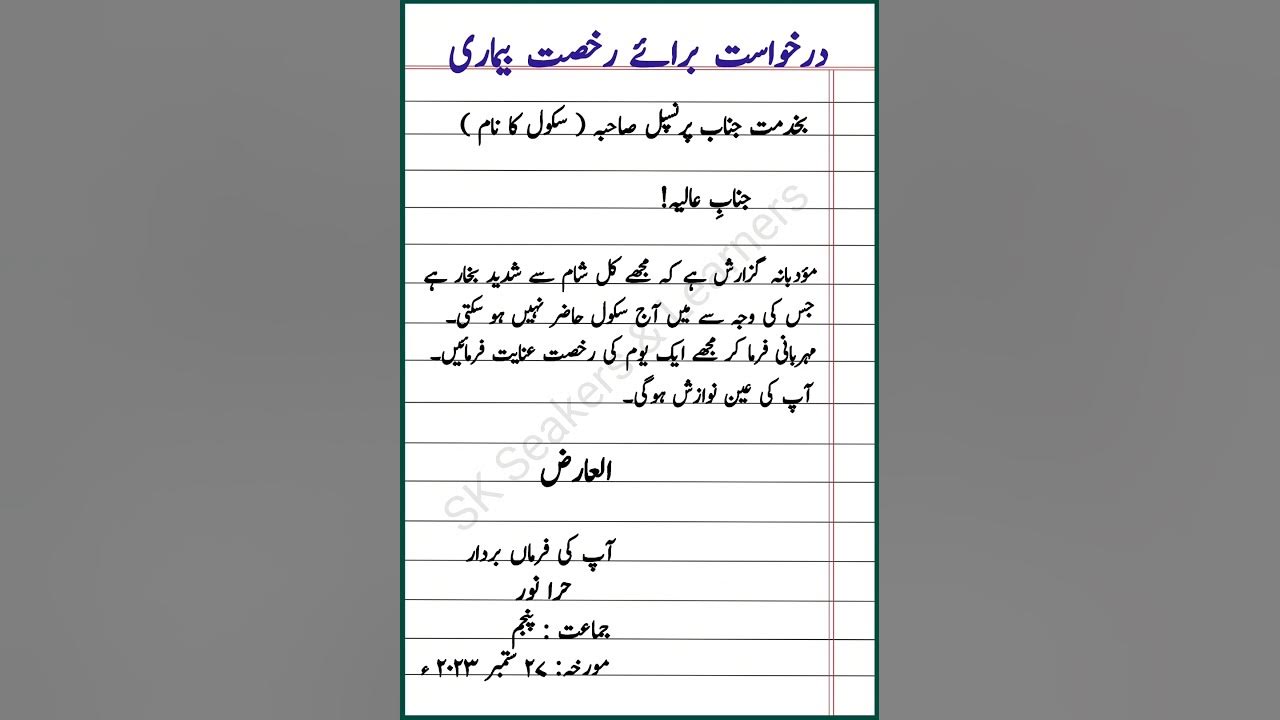 درخواست برائے رخصت بیماری
بخدمت جناب پرنسپل صاحبہ ( سکول کا نام )
جنابِ عالیہ!
مؤدبانہ گزارش ہے کہ مجھے کل شام سے شدید بخار ہے
جس کی وجہ سے میں آج سکول حاضر نہیں ہو سکتی۔
مہربانی فرما کر مجھے ایک یوم کی رخصت عنایت فرمائیں۔
آپ کی عین نوازش ہوگی۔
العارض
آپ کی فرماں بردار
حرا نور
جماعت : پنجم
مورخہ: ۲۷ ستمبر ۲۰۲۳ء
SK Seakers & Learners